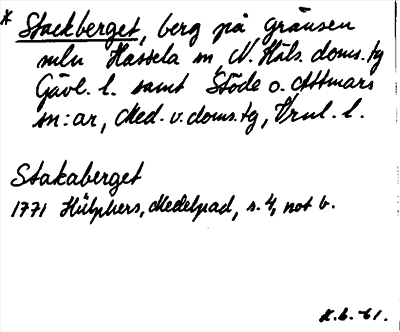 * Stackberget, berg på gränsen
mln Hassela sn, N. Häls. doms. tg
Gävl. l. samt Stöde o. Attmars
sn:ar, Med. v. doms. tg, Vrnl. l.
Stakaberget
1771 Hülphers, Medelpad, s. 4, not b.